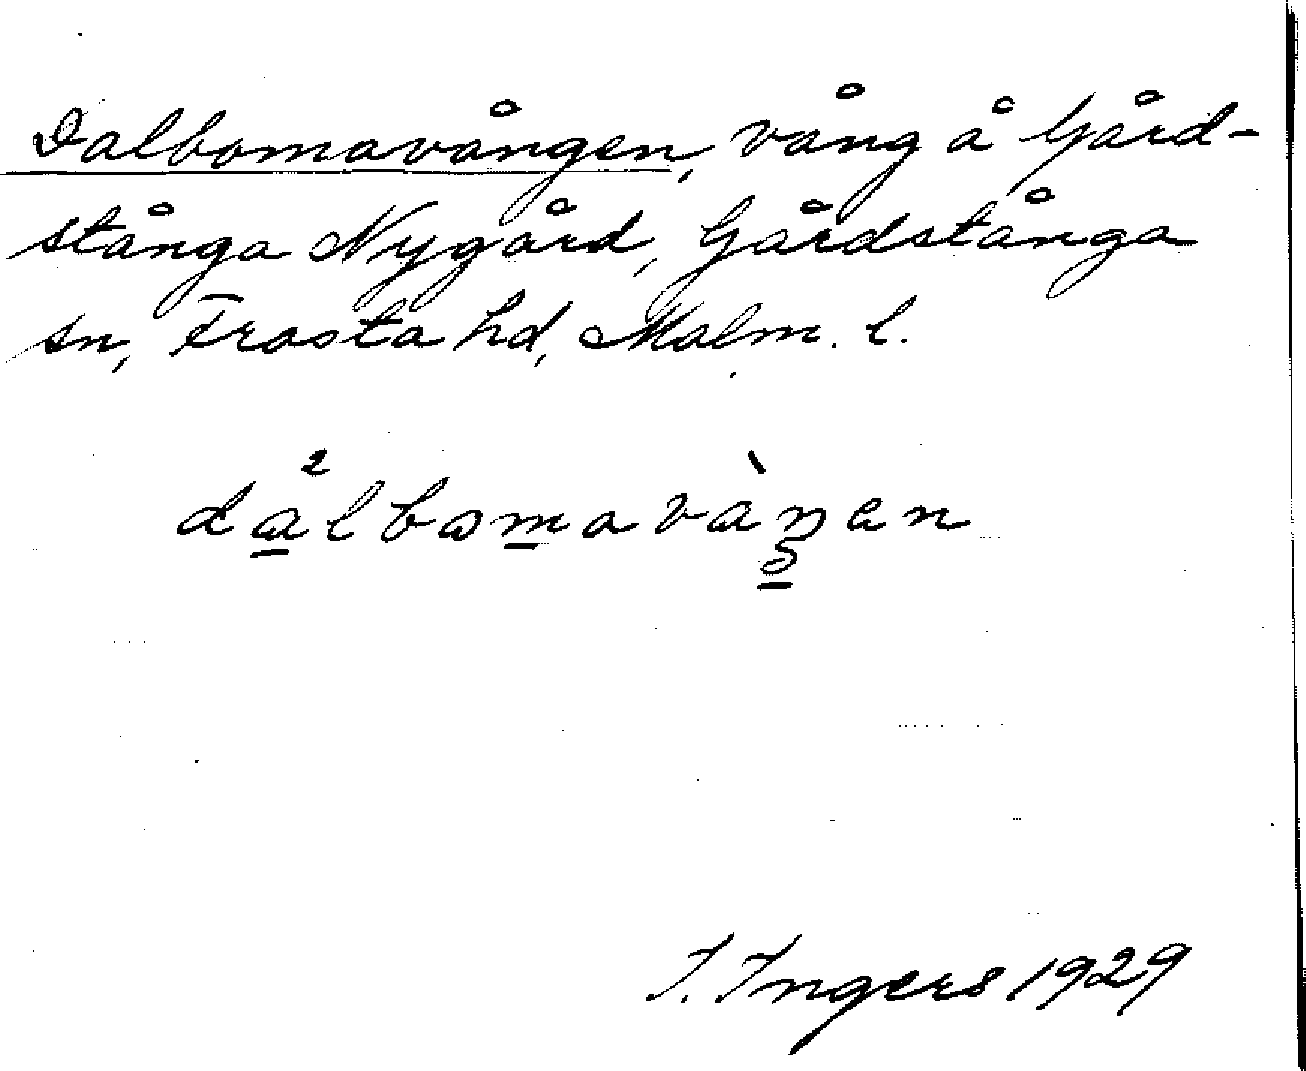 Dalbomavången, vång å Gård-
stånga Nygård, Gårdstånga
sn, Frosta hd, Malm. l.
I. Ingers 1929